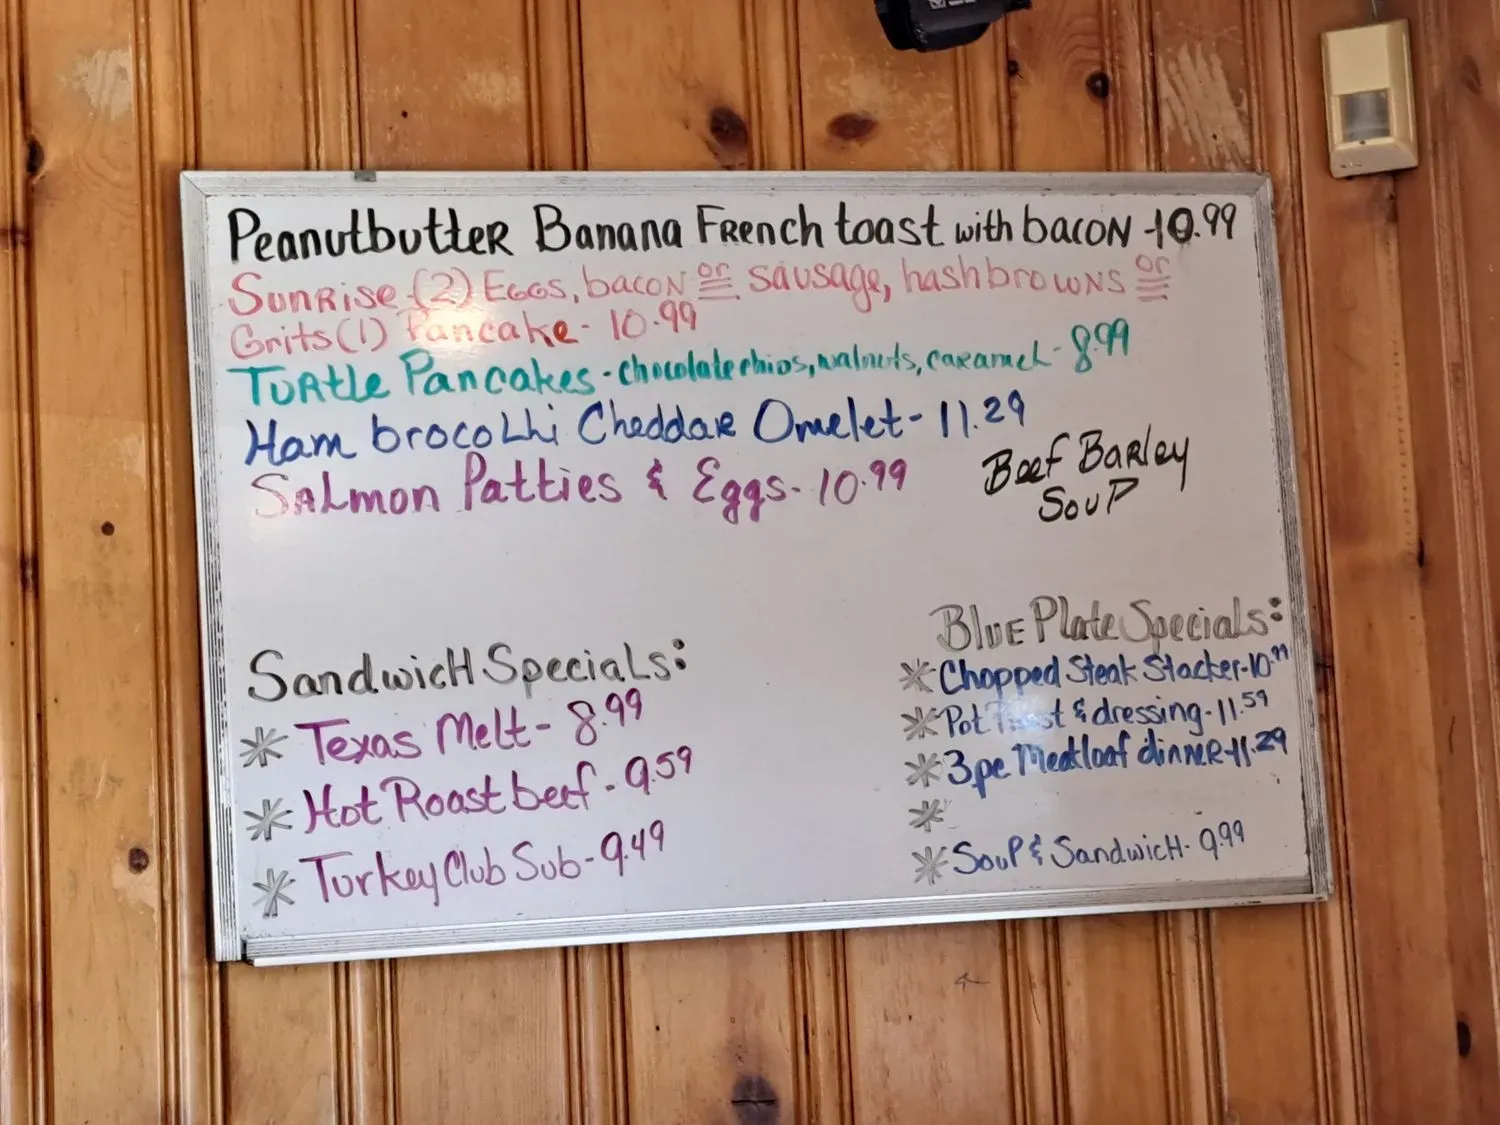 Peanutbutter Banana French toast with bacon - 10.99
Sunrise (2) Eggs, bacon or sausage, hashbrowns or
Grits (1) Pancake - 10.99
Turtle Pancakes - chocolatechips, walnuts, caramel - 8.99
Ham brocolhi Cheddar Omelet - 11.29
Salmon Patties & Eggs - 10.99
Beef Barley
Soup
Sandwich Specials:
* Texas Melt - 8.99
* Hot Roast beef - 9.59
* Turkey Club Sub - 9.49
Blue Plate Specials:
* Chopped Steak Stacker - 10.99
* Pot Roast & dressing - 11.59
* 3pc Meatloaf dinner - 11.29
*
* Soup & Sandwich - 9.99